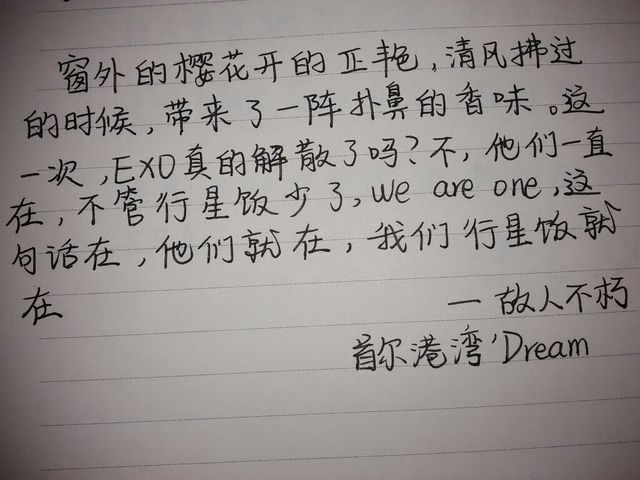 窗外的樱花开的正艳,清风拂过
的时候,带来了一阵扑鼻的香味。这
一次,EXO真的解散了吗?不,他们一直
在,不管行星饭少了,we are one,这
句话在,他们就在,我们行星饭就
在
一故人不朽
首尔港湾'Dream